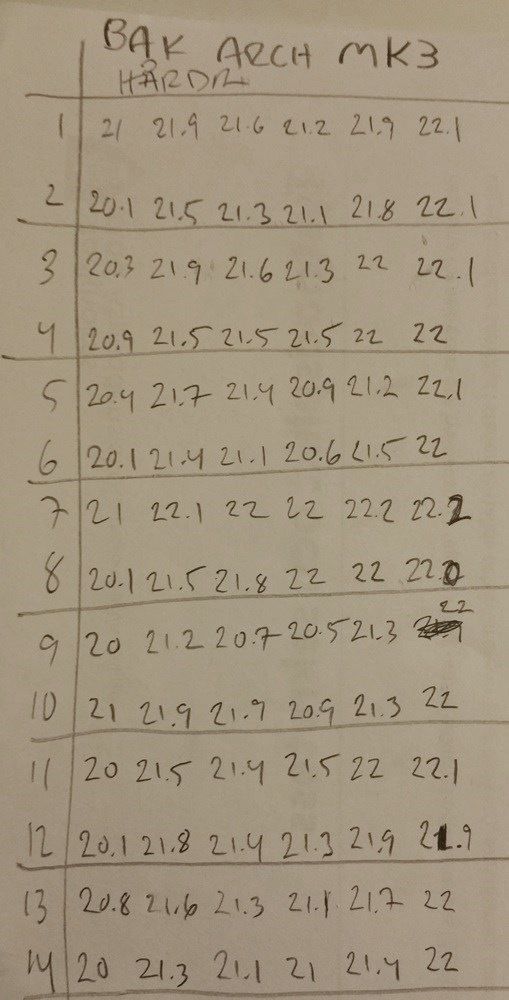 BAK ARCH MK3
HÅRDR
1 21 21.9 21.6 21.2 21.9 22.1
2 20.1 21.5 21.3 21.1 21.8 22.1
3 20.3 21.9 21.6 21.3 22 22.1
4 20.9 21.5 21.5 21.5 22 22
5 20.4 21.7 21.4 20.9 21.2 22.1
6 20.1 21.4 21.1 20.6 21.5 22
7 21 22.1 22 22 22.2 22.2
8 20.1 21.5 21.8 22 22 22.0
9 20 21.2 20.7 20.5 21.3 22
10 21 21.9 21.9 20.9 21.3 22
11 20 21.5 21.4 21.5 22 22.1
12 20.1 21.8 21.4 21.3 21.9 21.9
13 20.8 21.6 21.3 21.1 21.7 22
14 20 21.3 21.1 21 21.4 22